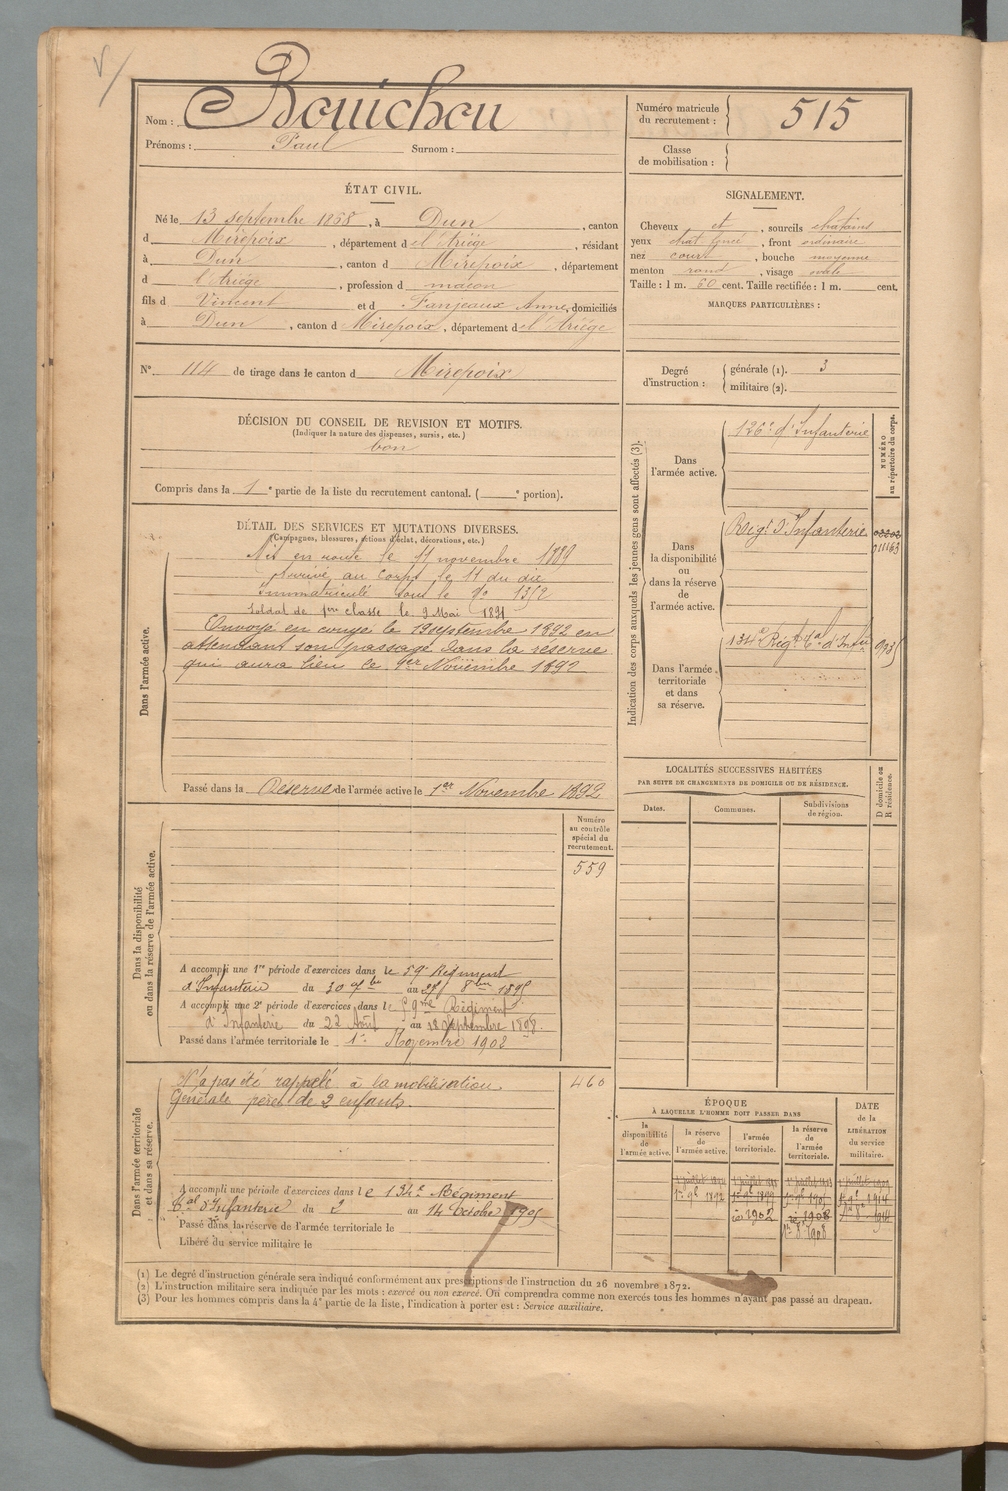 Nom : Bouichou
Prénoms : Paul Surnom :
Numéro matricule du recrutement : 515
Classe de mobilisation :
ÉTAT CIVIL.
Né le 13 septembre 1868, à Dun, canton
d Mirepoix, département d el'Ariège, résidant
à Dun, canton d Mirepoix, département
d l'Ariége, profession d macon
fils d Vincent et d Fanjeaux Anne, domiciliés
à Dun, canton d Mirepoix, département d el'Ariége
SIGNALEMENT.
Cheveux et, sourcils chatains
yeux chat foncé, front ordinaire
nez court, bouche moyenne
menton rond, visage ovale
Taille : 1 m. 60 cent. Taille rectifiée : 1 m. cent.
MARQUES PARTICULIÈRES :
N° 114 de tirage dans le canton d Mirepoix
Degré d'instruction : générale (1). 3
militaire (2).
DÉCISION DU CONSEIL DE REVISION ET MOTIFS.
(Indiquer la nature des dispenses, sursis, etc.)
bon
Compris dans la 1e partie de la liste du recrutement cantonal. ( e portion).
DÉTAIL DES SERVICES ET MUTATIONS DIVERSES.
(Campagnes, blessures, actions d'éclat, décorations, etc.)
Dans l'armée active.
Mis en route le 11 novembre 1889
Arrivé au corps le 11 du dit
Immatriculé sous le No 1352
Soldat de 1ère classe le 9 Mai 1891
Envoyé en congé le 19 septembre 1892 en
attendant son passage dans la réserve
qui aura lieu le 1er Novembre 1892
Passé dans la Réserve de l'armée active le 1er Novembre 1892
Indication des corps auxquels les jeunes gens sont affectés (3).
NUMÉRO au répertoire du corps.
Dans l'armée active.
126e d'Infanterie
Dans la disponibilité ou dans la réserve de l'armée active.
Régt d'Infanterie
011163
Dans l'armée territoriale et dans sa réserve.
134e Régt tal d'Infie
LOCALITÉS SUCCESSIVES HABITÉES
PAR SUITE DE CHANGEMENTS DE DOMICILE OU DE RÉSIDENCE.
Dates.
Communes.
Subdivisions de région.
D domicile ou R résidence.
Dans la disponibilité ou dans la réserve de l'armée active.
Numéro au contrôle spécial du recrutement.
559
A accompli une 1re période d'exercices dans le 59e Régiment
d'Infanterie du 30 7bre au 27 8bre 1895
A accompli une 2e période d'exercices dans le 59me Régiment
d'Infanterie du 22 Août au 18 Septembre 1898.
Passé dans l'armée territoriale le 1er Novembre 1902
Dans l'armée territoriale et dans sa réserve.
N'a pas été rappelé à la mobilisation
Générale père de 2 enfants.
460
A accompli une période d'exercices dans le 134e Régiment
tal d'Infanterie du 2 au 14 Octobre 1905
Passé dans la réserve de l'armée territoriale le
Libéré du service militaire le
ÉPOQUE
À LAQUELLE L'HOMME DOIT PASSER DANS
la disponibilité de l'armée active.
la réserve de l'armée active.
l'armée territoriale.
la réserve de l'armée territoriale.
DATE de la LIBÉRATION du service militaire.
1r 9bre 1892
1902
1908
(1) Le degré d'instruction générale sera indiqué conformément aux prescriptions de l'instruction du 26 novembre 1872.
(2) L'instruction militaire sera indiquée par les mots : exercé ou non exercé. On comprendra comme non exercés tous les hommes n'ayant pas passé au drapeau.
(3) Pour les hommes compris dans la 4e partie de la liste, l'indication à porter est : Service auxiliaire.